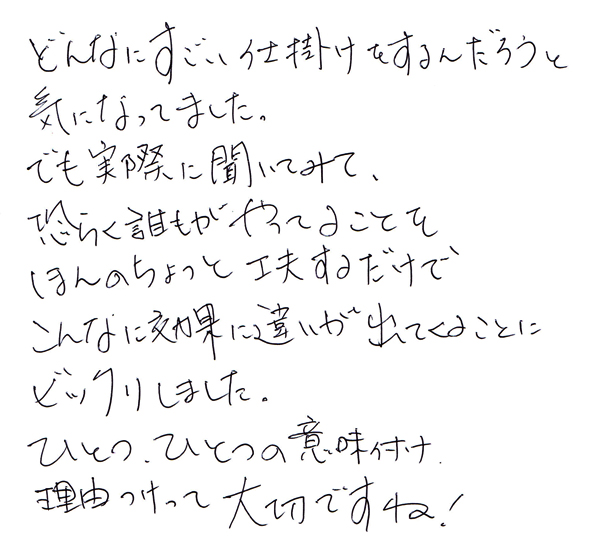 どんなにすごい仕掛けをするんだろうと
気になってました。
でも実際に聞いてみて、
恐らく誰もがやってることを
ほんのちょっと工夫するだけで
こんなに効果に違いが出てくることに
ビックリしました。
ひとつ、ひとつの意味付け、
理由つけって大切ですね!